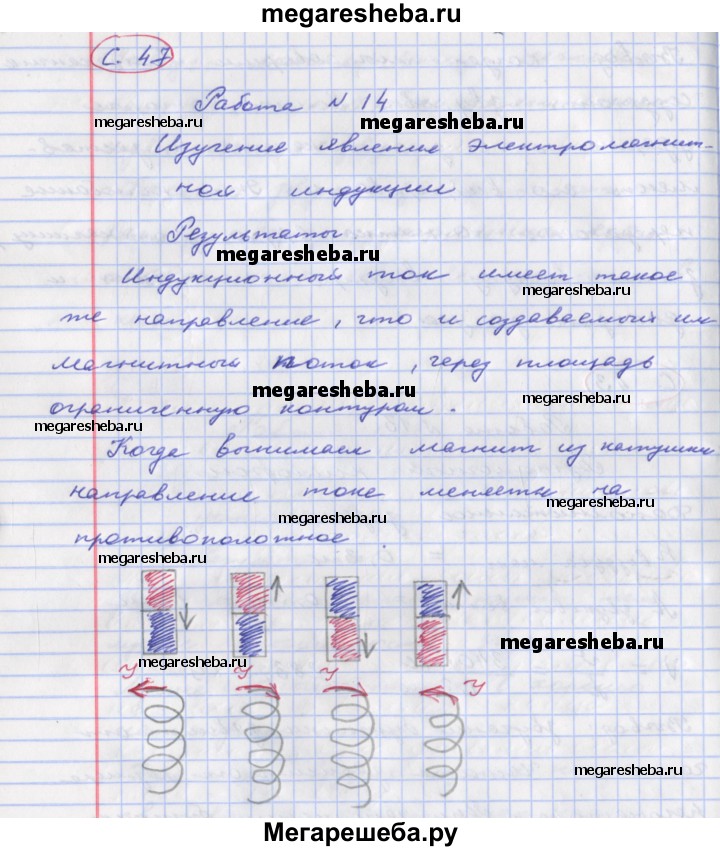 megaresheba.ru
С. 47
Работа N 14
megaresheba.ru
megaresheba.ru
Изучение явление электромагнит-
ной индукции
Результаты
megaresheba.ru
Индукционный ток имеет такое
megaresheba.ru
же направление, что и создаваемый им
магнитный поток, через площадь
megaresheba.ru
megaresheba.ru
ограниченную контуром.
megaresheba.ru
Когда вынимаем магнит из катушки
megaresheba.ru
направление тока меняется на
megaresheba.ru
megaresheba.ru
противоположное.
megaresheba.ru
megaresheba.ru
megaresheba.ru
У У У У
megaresheba.ru
Мегарешеба.ру